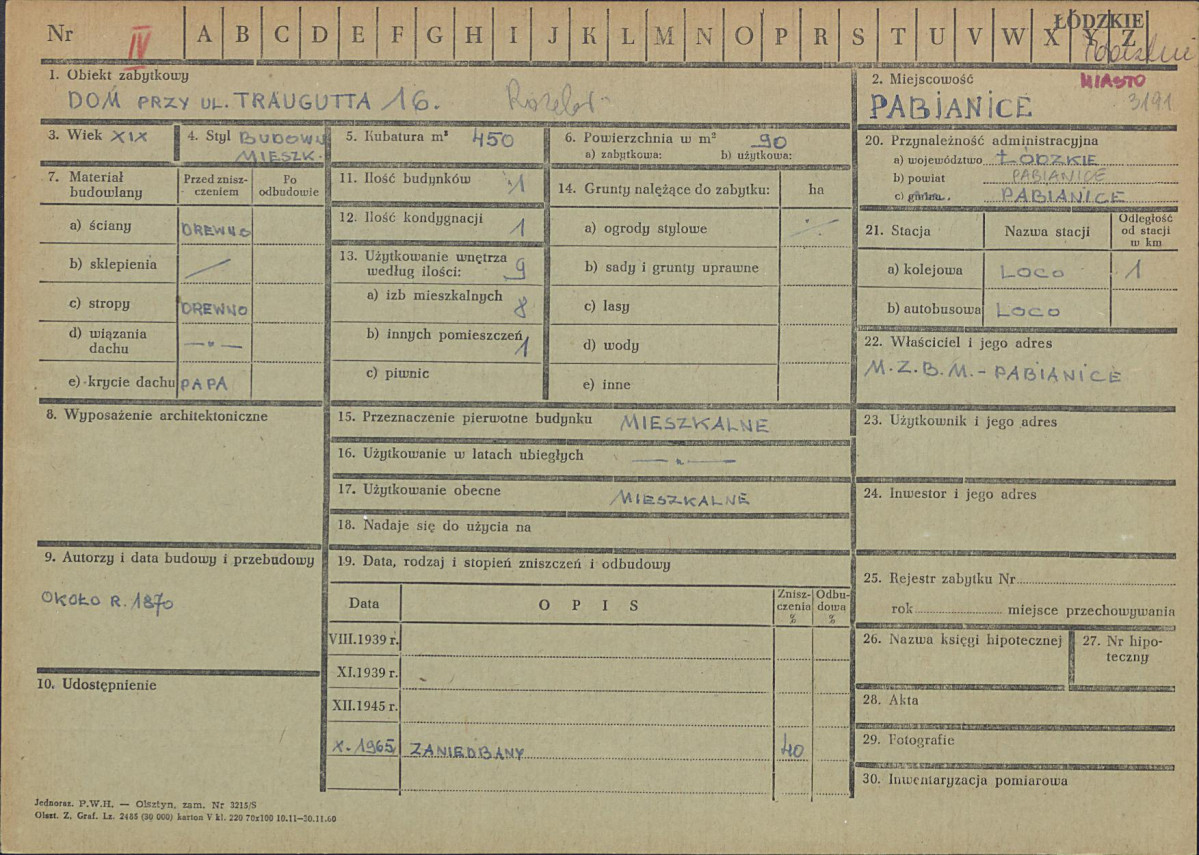 Nr IV A B C D E F G H I J K L M N O P R S T U V W X Y Z
ŁÓDZKIE
1. Obiekt zabytkowy
DOM PRZY UL. TRAUGUTTA 16.
2. Miejscowość MIASTO
PABJANICE 3191
3. Wiek XIX
4. Styl BUDOWN
MIESZK.
5. Kubatura m³ 450
6. Powierzchnia w m² 90
a) zabytkowa: b) użytkowa:
7. Materiał budowlany
Przed zniszczeniem
Po odbudowie
a) ściany DREWNO
b) sklepienia /
c) stropy DREWNO
d) wiązania dachu —„—
e) krycie dachu PAPA
8. Wyposażenie architektoniczne
9. Autorzy i data budowy i przebudowy
OKOŁO R. 1870
10. Udostępnienie
11. Ilość budynków 1
12. Ilość kondygnacji 1
13. Użytkowanie wnętrza według ilości: 9
a) izb mieszkalnych 8
b) innych pomieszczeń 1
c) piwnic
14. Grunty należące do zabytku: ha
a) ogrody stylowe
b) sady i grunty uprawne
c) lasy
d) wody
e) inne
15. Przeznaczenie pierwotne budynku MIESZKALNE
16. Użytkowanie w latach ubiegłych —„—
17. Użytkowanie obecne MIESZKALNE
18. Nadaje się do użycia na
19. Data, rodzaj i stopień zniszczeń i odbudowy
Data OPIS Zniszczenia % Odbudowa %
VIII.1939 r.
XI.1939 r.
XII.1945 r.
X.1965 ZANIEDBANY 40
20. Przynależność administracyjna
a) województwo ŁÓDZKIE
b) powiat PABIANICE
c) gmina PABIANICE
21. Stacja Nazwa stacji Odległość od stacji w km
a) kolejowa LOCO 1
b) autobusowa LOCO
22. Właściciel i jego adres
M.Z.B.M. - PABIANICE
23. Użytkownik i jego adres
24. Inwestor i jego adres
25. Rejestr zabytku Nr
rok miejsce przechowywania
26. Nazwa księgi hipotecznej
27. Nr hipoteczny
28. Akta
29. Fotografie
30. Inwentaryzacja pomiarowa
Jednoraz. P.W.H. — Olsztyn, zam. Nr 3215/S
Olszt. Z. Graf. Lz. 2485 (30 000) karton V kl. 220 70x100 10.11—30.11.60